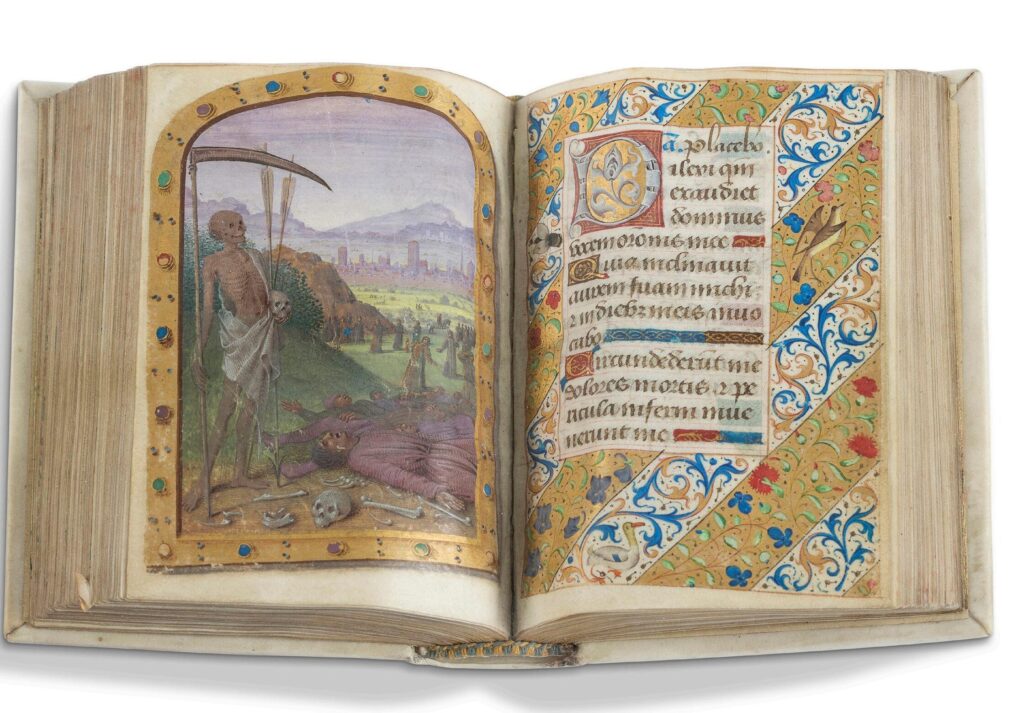 a. Placebo.
Dilexi qui
exaudiet
dominus
vocem oronis mee
Quia inclinavit
aurem suam michi
⁊ in dieb; meis invo
cabo
Circundederut me
dolores mortis ⁊ pe
ricula inferni inve
nerunt me